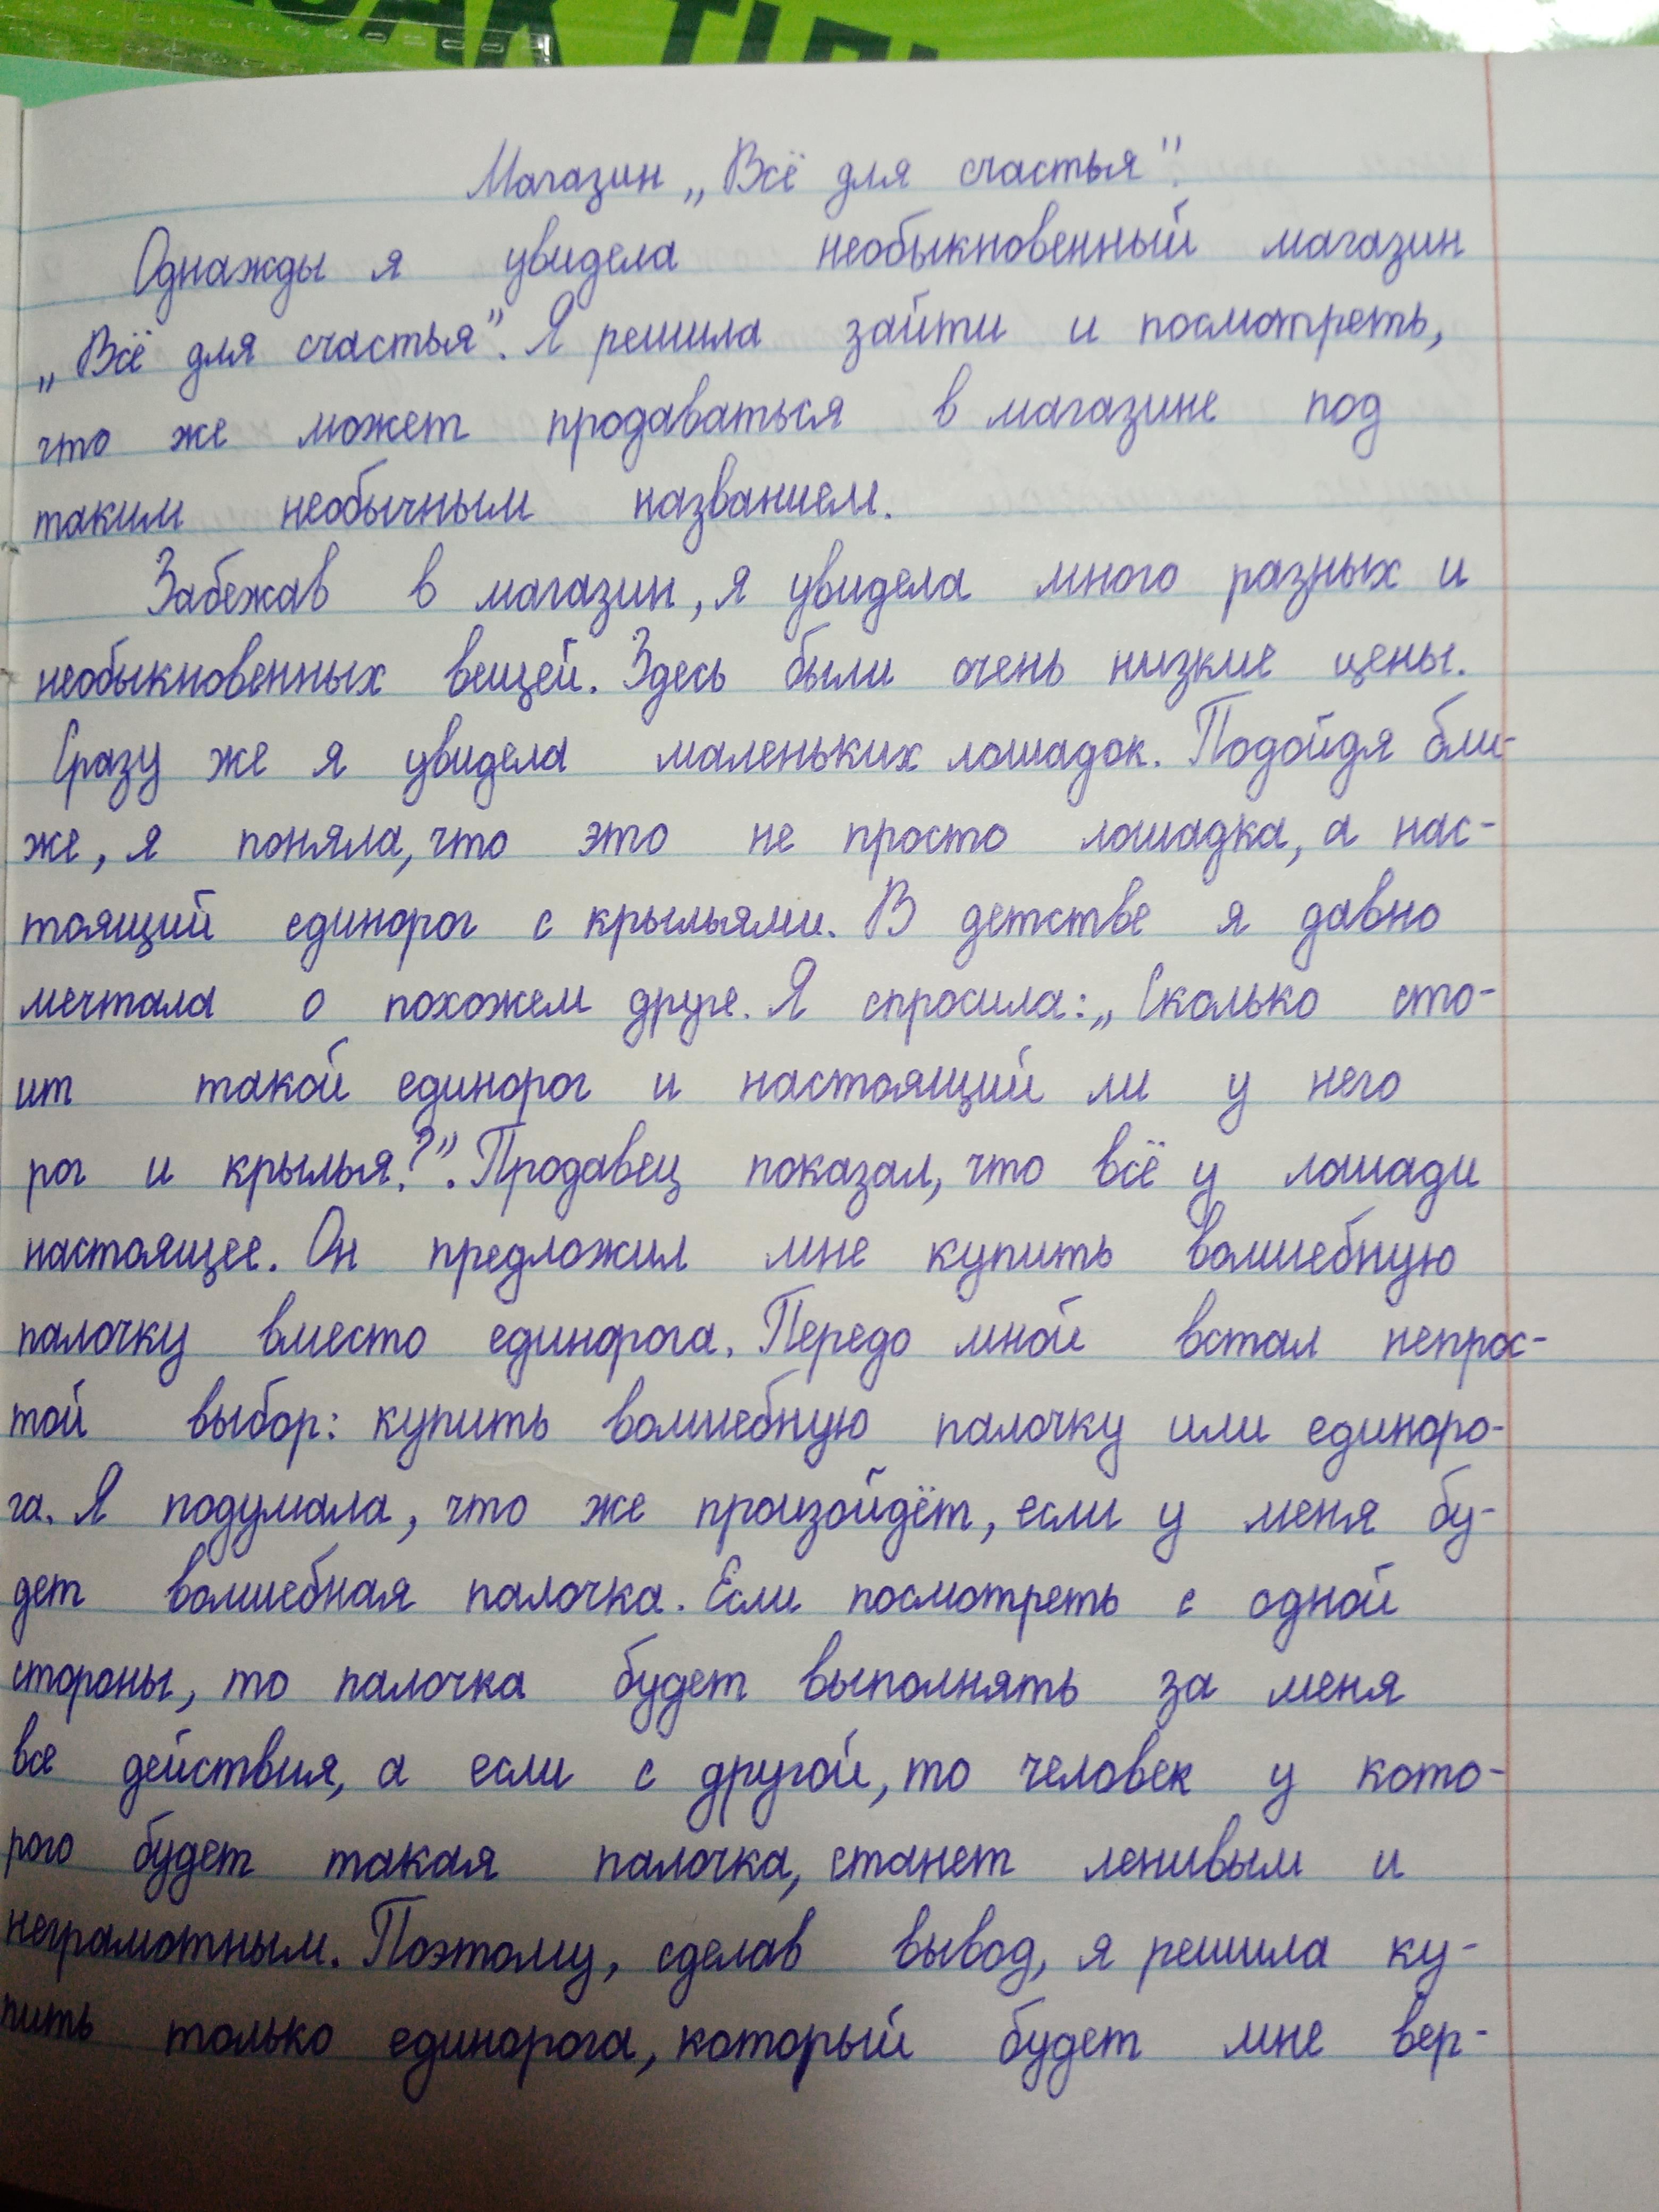 Магазин „Всё для счастья".
Однажды я увидела необыкновенный магазин
„Всё для счастья". Я решила зайти и посмотреть,
что же может продаваться в магазине под
таким необычным названием.
Забежав в магазин, я увидела много разных и
необыкновенных вещей. Здесь были очень низкие цены.
Сразу же я увидела маленьких лошадок. Подойдя бли-
же, я поняла, что это не просто лошадка, а нас-
тоящий единорог с крыльями. В детстве я давно
мечтала о похожем друге. Я спросила: „Сколько сто-
ит такой единорог и настоящий ли у него
рог и крылья?". Продавец показал, что всё у лошади
настоящее. Он предложил мне купить волшебную
палочку вместо единорога. Передо мной встал непрос-
той выбор: купить волшебную палочку или единоро-
га. Я подумала, что же произойдёт, если у меня бу-
дет волшебная палочка. Если посмотреть с одной
стороны, то палочка будет выполнять за меня
все действия, а если с другой, то человек у кото-
рого будет такая палочка, станет ленивым и
неграмотным. Поэтому, сделав вывод, я решила ку-
пить только единорога, который будет мне вер-